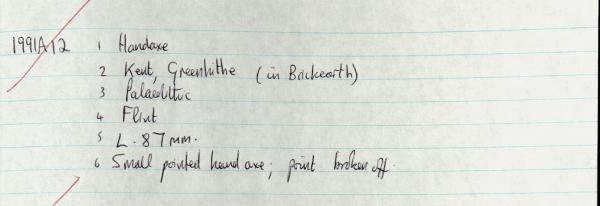 1991A12 1 Handaxe
2 Kent, Greenhithe (in Brickearth)
3 Palaeolithic
4 Flint
5 L. 87mm.
6 Small pointed hand axe; point broken off.